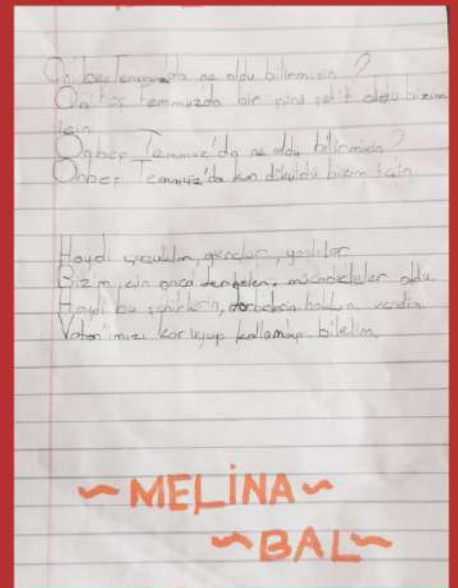 On beş Temmuz'da ne oldu bilirmisin ?
On beş Temmuzda bir sürü şehit oldu bizim
için
Onbeş Temmuz'da ne oldu bilirmisin ?
Onbeş Temmuz'da kan döküldü bizim için.
Haydi çocuklar, gençler, yaşlılar
Bizim için onca mücadeleler oldu.
Haydi bu şehitlerin, hakkın verelim.
Vatanımızı koruyup kollamayı bilelim.
~ MELİNA ~
~ BAL ~